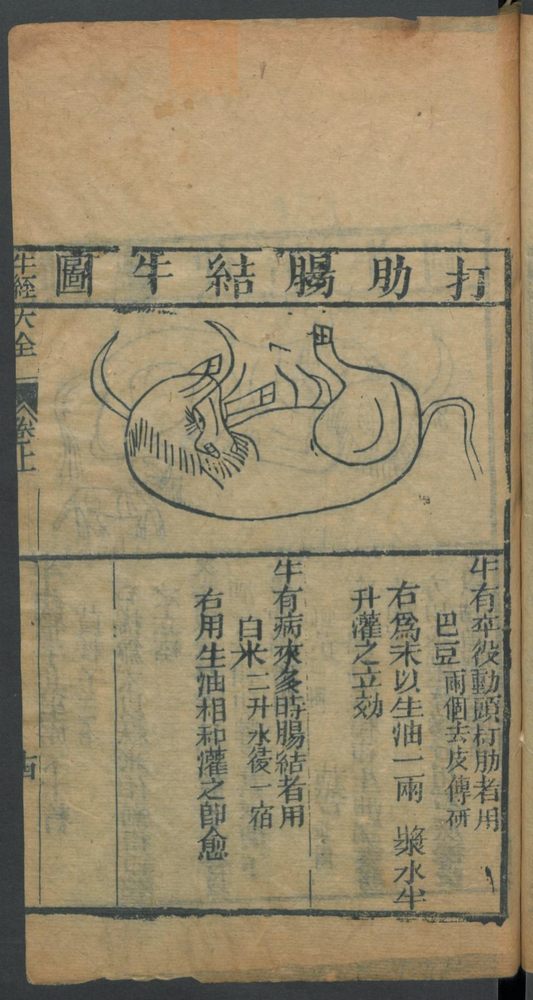 打肋腸結牛圖
牛有卒役動頭打肋者用
巴豆兩個去皮傳研
右爲末以生油一兩 漿水半
升灌之立効
牛有病來多時腸結者用
白米二升水浸一宿
右用生油相和灌之卽愈
牛經大全
卷上